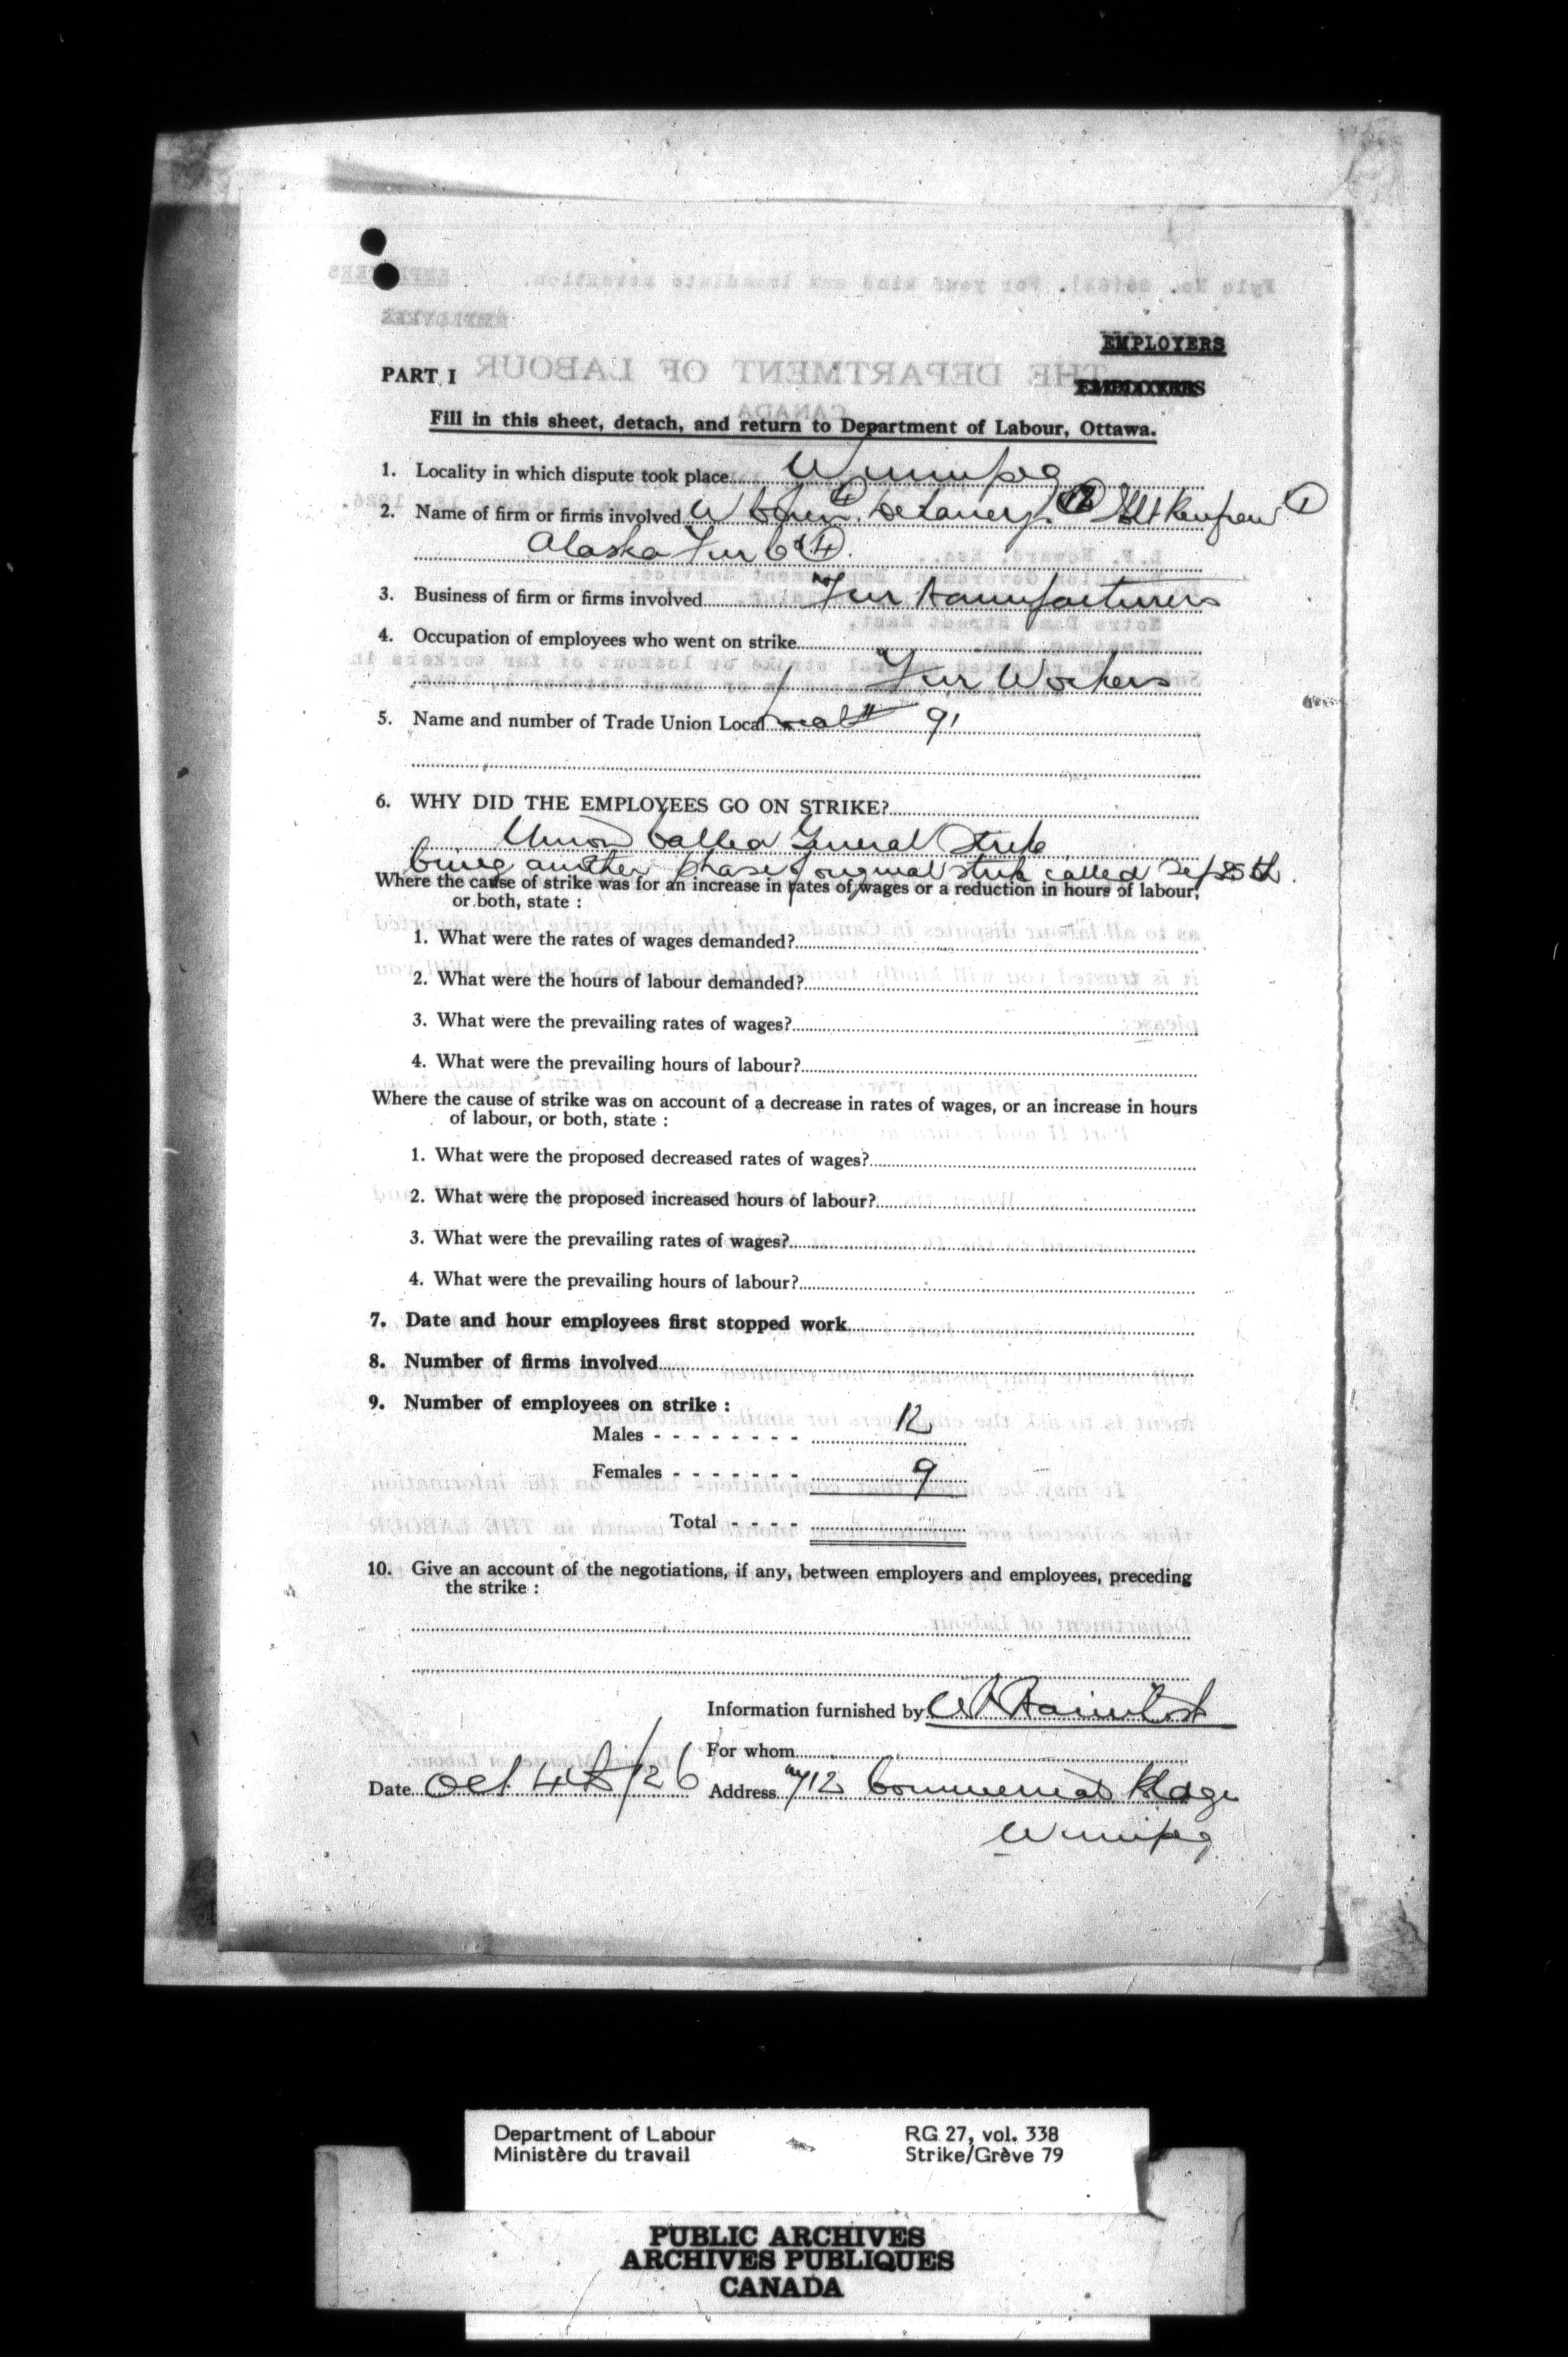 EMPLOYERS
PART I
Fill in this sheet, detach, and return to Department of Labour, Ottawa.
1. Locality in which dispute took place Winnipeg
2. Name of firm or firms involved ④ Delaney Holt Renfrew ①
Alaska Fur Co ④.
3. Business of firm or firms involved Fur Manufacturers
4. Occupation of employees who went on strike
Fur Workers
5. Name and number of Trade Union Local Local # 91
6. WHY DID THE EMPLOYEES GO ON STRIKE?
Union Called General Strike
being another phase of original strike called Sep
Where the cause of strike was for an increase in rates of wages or a reduction in hours of labour, or both, state :
1. What were the rates of wages demanded?
2. What were the hours of labour demanded?
3. What were the prevailing rates of wages?
4. What were the prevailing hours of labour?
Where the cause of strike was on account of a decrease in rates of wages, or an increase in hours
of labour, or both, state :
1. What were the proposed decreased rates of wages?
2. What were the proposed increased hours of labour?
3. What were the prevailing rates of wages?
4. What were the prevailing hours of labour?
7. Date and hour employees first stopped work
8. Number of firms involved
9. Number of employees on strike :
Males - - - - - - - - 12
Females - - - - - - - 9
Total - - - -
10. Give an account of the negotiations, if any, between employers and employees, preceding
the strike :
Information furnished by
For whom
Date Oct 4th/26 Address 712 Commercial Bldge
Winnipeg
Department of Labour RG 27, vol. 338
Ministère du travail Strike/Grève 79
PUBLIC ARCHIVES
ARCHIVES PUBLIQUES
CANADA